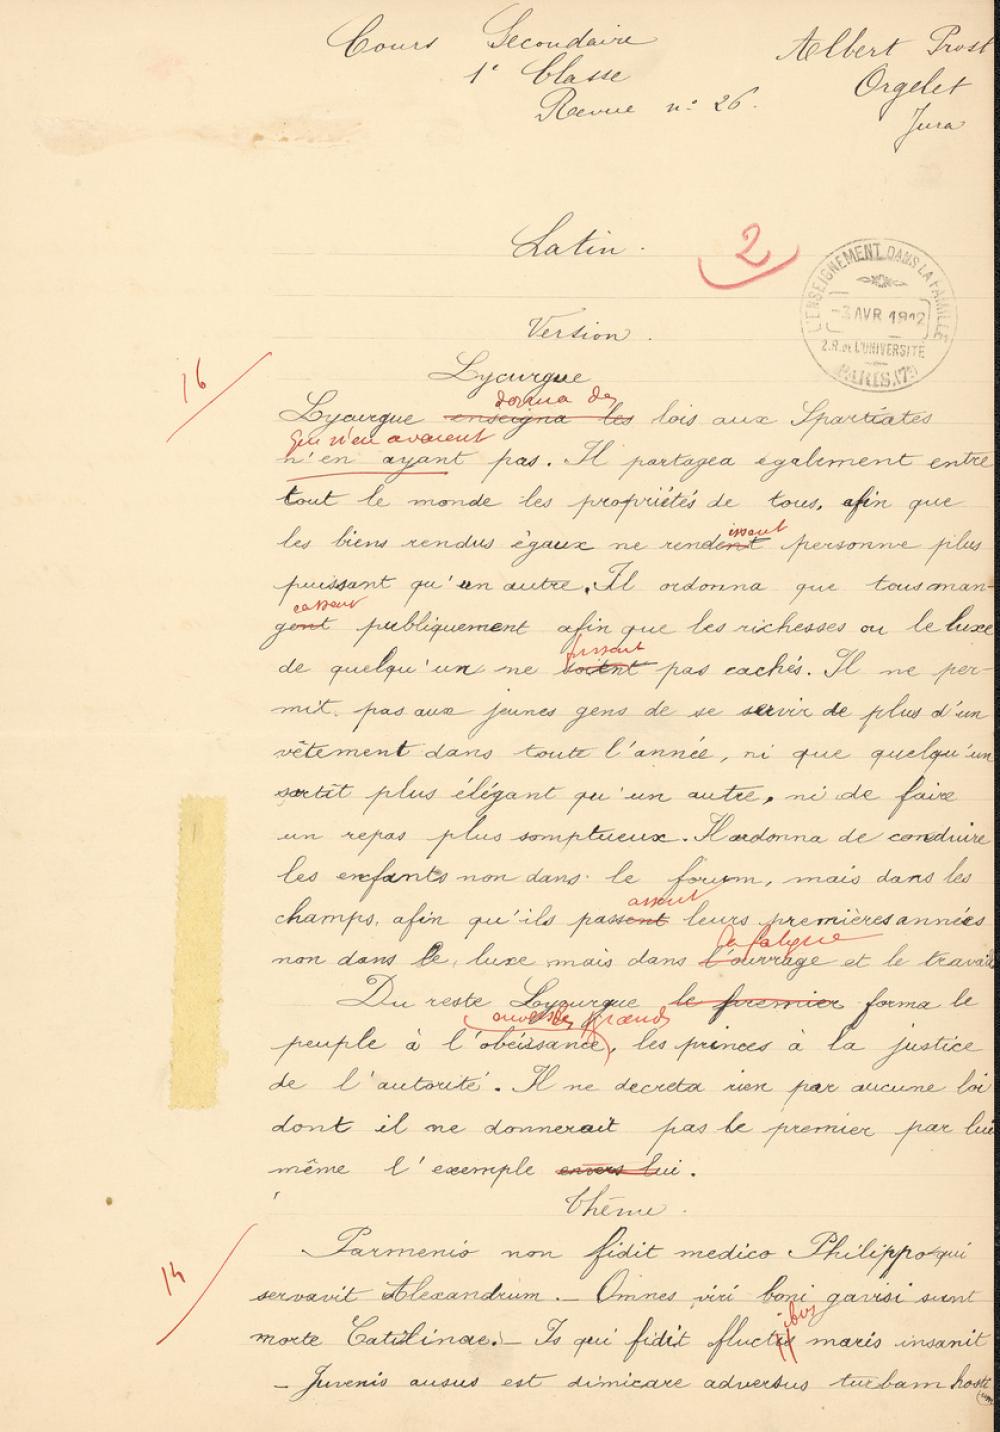 Cours Secondaire
Albert Prost
1e Classe
Orgelet
Revue n: 26.
Jura
Latin.
2
L'ENSEIGNEMENT DANS LA FAMILLE
-3 AVR 1912
2.R. de L'UNIVERSITÉ
PARIS.(7e)
Version.
16
Lycurgue
donna des
Lycurgue enseigna les lois aux Spartiates
qui n'en avaient
n'en ayant pas. Il partagea également entre
tout le monde les propriétés de tous, afin que
issent
les biens rendus égaux ne rendent personne plus
puissant qu'un autre. Il ordonna que tous man-
eassent
gent publiquement afin que les richesses ou le luxe
fussent
de quelqu'un ne soient pas cachés. Il ne per-
mit pas aux jeunes gens de se servir de plus d'un
vêtement dans toute l'année, ni que quelqu'un
sortît plus élégant qu'un autre, ni de faire
un repas plus somptueux. Il ordonna de conduire
les enfants non dans le forum, mais dans les
assent
champs, afin qu'ils passent leurs premières années
la fatigue
non dans le luxe mais dans l'ouvrage et le travail
Du reste Lycurgue le premier forma le
envers les grands
peuple à l'obéissance, les princes à la justice
de l'autorité. Il ne decreta rien par aucune loi
dont il ne donnerait pas le premier par lui
même l'exemple envers lui.
Thême.
14
Parmenio non fidit medico Philippo qui
servavit Alexandrum. — Omnes viri boni gavisi sunt
ibus
morte Catilinae. — Is qui fidit fluctis maris insanit
— Juvenis ausus est dimicare adversus turbam hosti
um